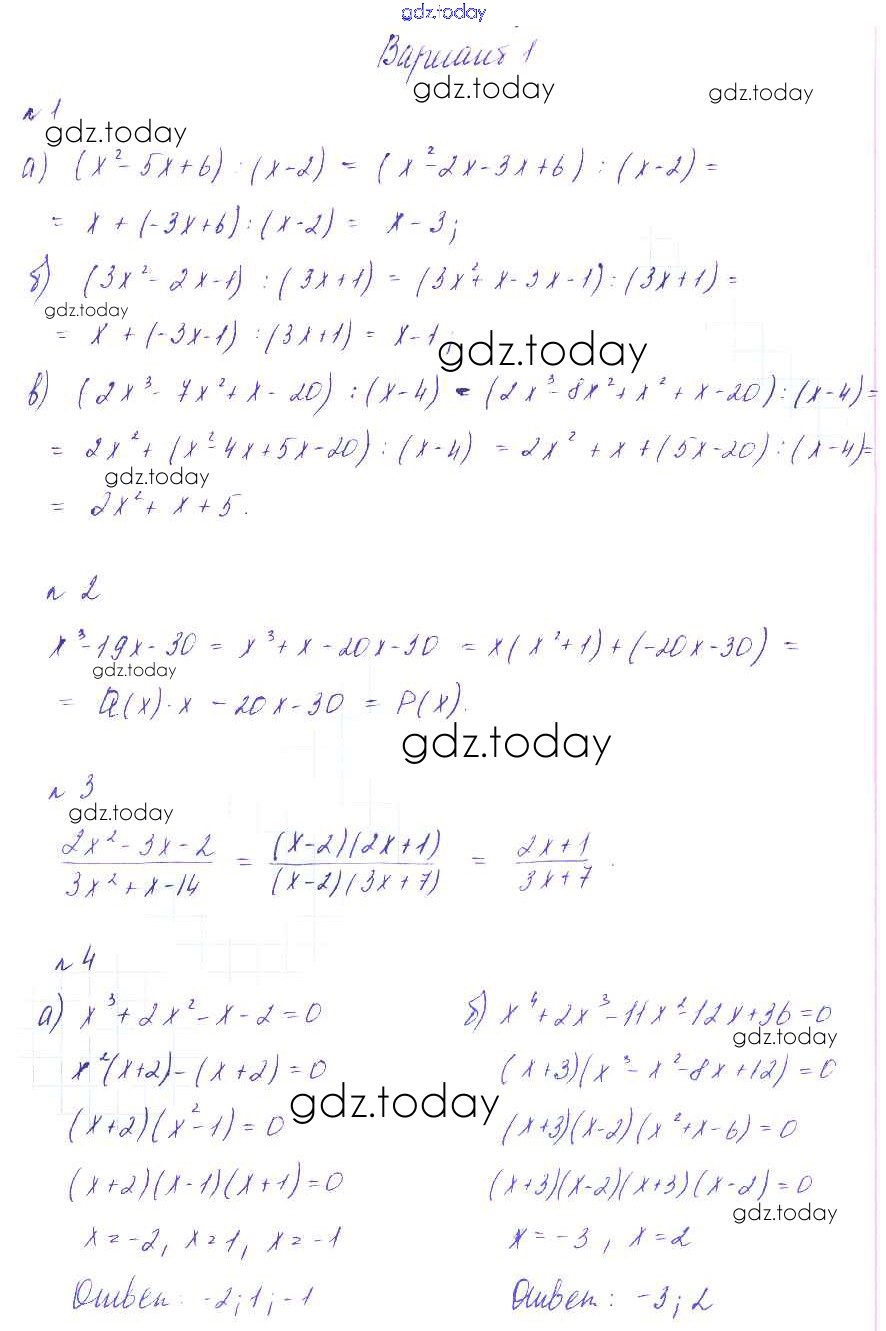 gdz.today
Вариант 1
gdz.today gdz.today
№ 1
gdz.today
а) (x² - 5x + 6) : (x - 2) = (x² - 2x - 3x + 6) : (x - 2) =
= x + (-3x + 6) : (x - 2) = x - 3;
б) (3x² - 2x - 1) : (3x + 1) = (3x² + x - 3x - 1) : (3x + 1) =
gdz.today
= x + (-3x - 1) : (3x + 1) = x - 1;
gdz.today
в) (2x³ - 7x² + x - 20) : (x - 4) = (2x³ - 8x² + x² + x - 20) : (x - 4) =
= 2x² + (x² - 4x + 5x - 20) : (x - 4) = 2x² + x + (5x - 20) : (x - 4) =
gdz.today
= 2x² + x + 5.
№ 2
x³ - 19x - 30 = x³ + x - 20x - 30 = x(x² + 1) + (-20x - 30) =
gdz.today
= Q(x) · x - 20x - 30 = P(x).
gdz.today
№ 3
gdz.today
(2x² - 3x - 2)/(3x² + x - 14) = ((x - 2)(2x + 1))/((x - 2)(3x + 7)) = (2x + 1)/(3x + 7).
№ 4
а) x³ + 2x² - x - 2 = 0
x²(x + 2) - (x + 2) = 0
(x + 2)(x² - 1) = 0
gdz.today
(x + 2)(x - 1)(x + 1) = 0
x = -2, x = 1, x = -1
Ответ: -2; 1; -1
б) x⁴ + 2x³ - 11x² - 12x + 36 = 0
gdz.today
(x + 3)(x³ - x² - 8x + 12) = 0
(x + 3)(x - 2)(x² + x - 6) = 0
(x + 3)(x - 2)(x + 3)(x - 2) = 0
gdz.today
x = -3, x = 2
Ответ: -3; 2